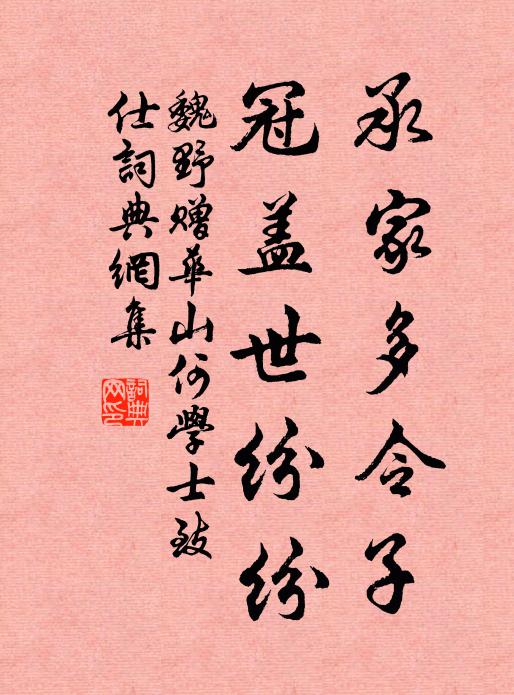 承家多令子
冠盖世紛紛
魏野贈華山何學士致
仕詞典網集
詞典
网印